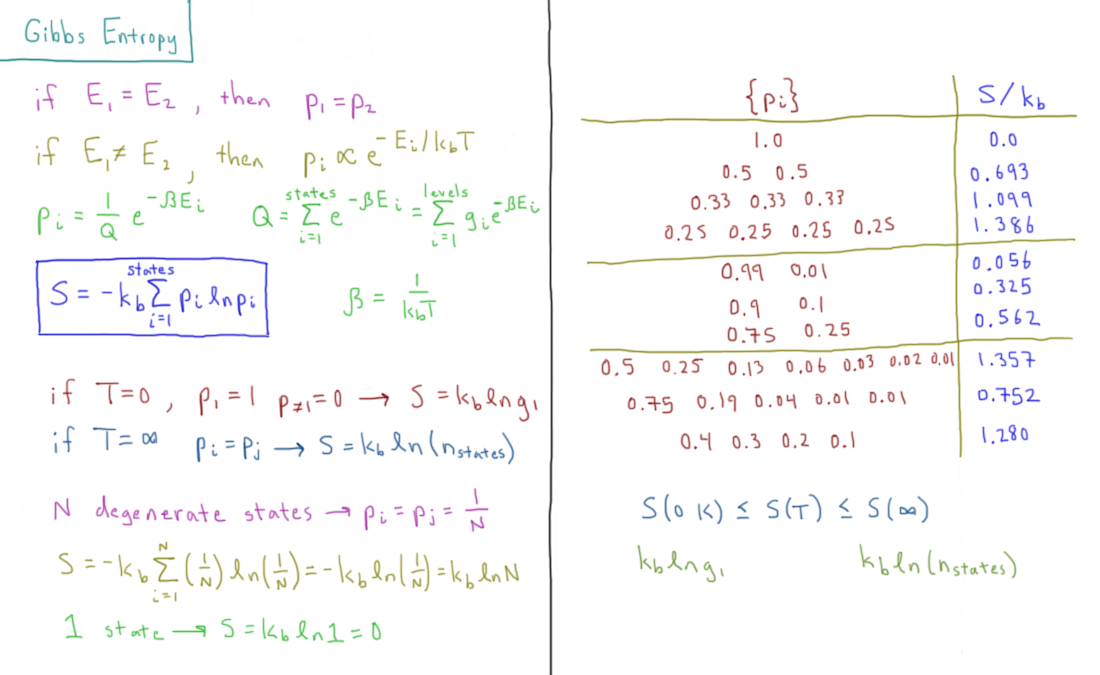 Gibbs Entropy
if E₁ = E₂ , then p₁ = p₂
if E₁ ≠ E₂ , then pᵢ ∝ e^(-Eᵢ/k_bT)
pᵢ = 1/Q e^(-βEᵢ) Q = Σ_(i=1)^(states) e^(-βEᵢ) = Σ_(i=1)^(levels) gᵢe^(-βEᵢ)
S = -k_b Σ_(i=1)^(states) pᵢ ln pᵢ β = 1/(k_bT)
if T=0 , p₁ = 1 p_(≠1) = 0 → S = k_b ln g₁
if T=∞ pᵢ = pⱼ → S = k_b ln(n_states)
N degenerate states → pᵢ = pⱼ = 1/N
S = -k_b Σ_(i=1)^(N) (1/N) ln(1/N) = -k_b ln(1/N) = k_b ln N
1 state → S = k_b ln 1 = 0
{pᵢ} S/k_b
1.0 0.0
0.5 0.5 0.693
0.33 0.33 0.33 1.099
0.25 0.25 0.25 0.25 1.386
0.99 0.01 0.056
0.9 0.1 0.325
0.75 0.25 0.562
0.5 0.25 0.13 0.06 0.03 0.02 0.01 1.357
0.75 0.19 0.04 0.01 0.01 0.752
0.4 0.3 0.2 0.1 1.280
S(0 K) ≤ S(T) ≤ S(∞)
k_b ln g₁ k_b ln(n_states)